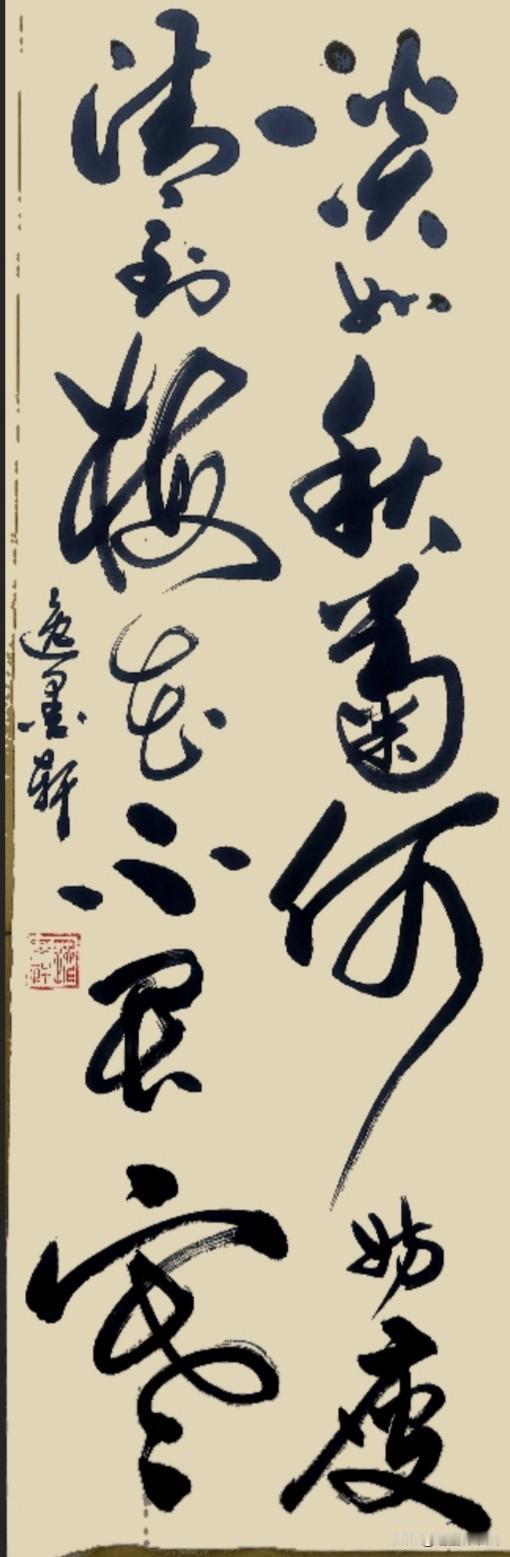 淡如秋菊何妨瘦
清到梅花不畏寒
逸墨轩